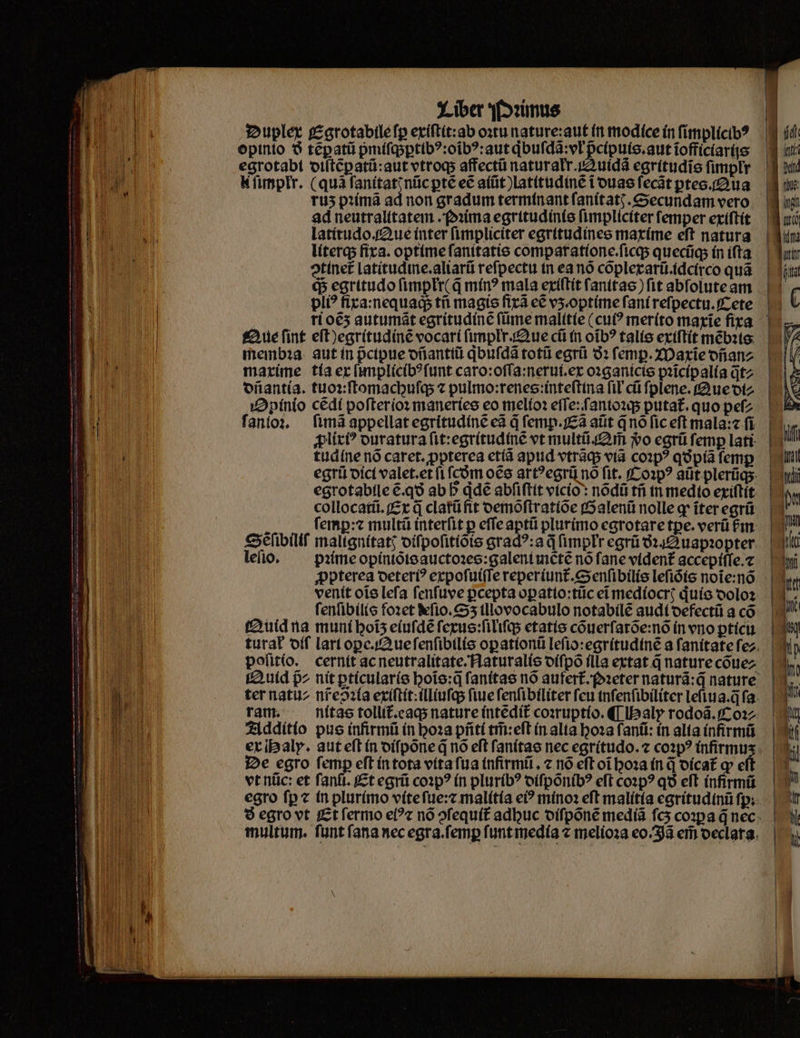 Liber Primus
Duplex Egrotabile sp existit: ab ortu nature: aut in modice in simplicibꝰ
opinio ð tẽpatũ p̄misqꝫ ptibꝰ: oĩbꝰ: aut q̇busdã: vl̕ p̄cipuis. aut ĩofficiarijs
egrotabi distẽpatũ: aut vtroqꝫ affectũ naturalr̕. Quidã egritudĩs simplr̕
simplr̕. (quã sanitatꝭ nũc ptẽ eẽ aiũt) latitudinẽ ĩ duas secãt ptes. Qua
rum primã ad non gradum terminant sanitatꝭ. Secundam vero
ad neutralitatem. Prima egritudinis simpliciter semper existit
latitudo. Que inter simpliciter egritudines maxime est natura
literqꝫ fixa. optime sanitatis comparatione. sicqꝫ quecũqꝫ in ista
ↄtinet̕ latitudine. aliarũ respectu in ea nõ cõplexarũ. idcirco quã
qꝫ egritudo simplr̕ (q̃ minꝰ mala existit sanitas) sit absolute am
pliꝰ fixa: nequaqꝫ tñ magis fixã eẽ vꝫ. optime sani respectu. Cete
ri oẽs autumãt egritudinẽ sũme malitie (cuiꝰ merito maxĩe fixa
Que sint est) egritudinẽ vocari simplr̕. Que cũ in oĩbꝰ talis existit mẽbris
membra aut in p̄cipue dñantiũ q̇busdã totũ egrũ dr̃ semp. Maxĩe dñan⸗
maxime tia ex simplicibꝰ sunt caro: ossa: nerui. ex organicis prĩcipalia q̃t⸗
dñantia. tuor: stomachusqꝫ ⁊ pulmo: renes: intestina sil̕ cũ splene. Que di⸗
Opinio cẽdi posterior maneries eo melior esse: saniorqꝫ putat̕. quo pes⸗
sanior. simã appellat egritudinẽ eã q̃ semp. Eã aũt q̃ nõ sic est mala: ⁊ si
plixiꝰ duratura sit: egritudinẽ vt multũ. Qm̃ ṽo egrũ semp lati
tudine nõ caret. ppterea etiã apud vtrãqꝫ viã corpꝰ qðpiã semp
egrũ dici valet. et si scðm oẽs artꝰ egrũ nõ sit. Corpꝰ aũt plerũqꝫ
egrotabile ẽ. qð ab h̃ q̇dẽ absistit vicio: nõdũ tñ in medio existit
collocatũ. Ex q̃ clarũ fit demõstratiõe Galenũ nolle ꝙ ĩter egrũ
semp: ⁊ multũ intersit p esse aptũ plurimo egrotare tpe. verũ s̃m
Sẽsibilis malignitatꝭ dispositiõis gradꝰ: a q̃ simplr̕ egrũ dr̃. Quapropter
lesio. prime opiniõis auctores: galeni mẽtẽ nõ sane vident̕ accepisse. ⁊
ppterea deteriꝰ exposuisse reperiunt̕. Sensibilis lesiõis noĩe: nõ
venit oĩs lesa sensuve p̱cepta opatio: tũc eĩ mediocrꝭ q̇uis dolor
sensibilis foret lesio. Sꝫ illo vocabulo notabilẽ audi defectũ a cõ
Quid na muni hoĩꝫ eiusdẽ sexus: silisqꝫ etatis cõuersatõe: nõ in vno pticu
tural̕ dis lari ope. Que sensibilis opationũ lesio: egritudinẽ a sanitate se⸗
positio. cernit ac neutralitate. Naturalis dispõ illa extat q̃ nature cõue⸗
Quid p̃⸗ nit pticularis hoĩs: q̃ sanitas nõ aufert̕. Preter naturã: q̃ nature
ter natu⸗ nr̃e ↄtria existit: illiusqꝫ siue sensibiliter seu insensibiliter lesiua. q̃ sa
ram. nitas tollit̕. eaqꝫ nature intẽdit̕ corruptio. ¶ Haly rodoã. Cor⸗
Additio pus infirmũ in hora pñti tm̃: est in alia hora sanũ: in alia infirmũ
ex Haly. aut est in dispõne q̃ nõ est sanitas nec egritudo. ⁊ corpꝰ infirmuꝫ
De egro semp est in tota vita sua infirmũ. ⁊ nõ est oĩ hora in q̃ dicat̕ ꝙ est
vt nũc: et sanũ. Et egrũ corpꝰ in pluribꝰ dispõnibꝰ est corpꝰ qð est infirmũ
egro sp ⁊ in plurimo vite sue: ⁊ malitia eiꝰ minor est malitia egritudinũ sp:
ð egro vt Et sermo eiꝰ ⁊ nõ ↄsequit̕ adhuc dispõnẽ mediã scꝫ corpa q̃ nec
multum. sunt sana nec egra. semp sunt media ⁊ meliora eo. Jã em̃ declara